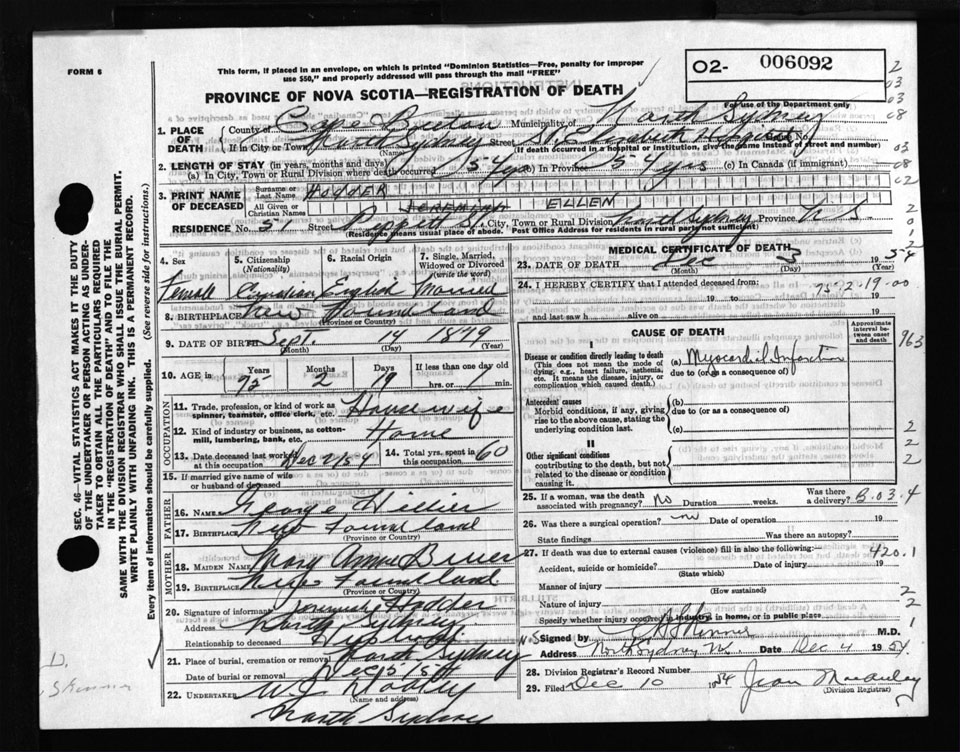 FORM 6
This form, if placed in an envelope, on which is printed "Dominion Statistics—Free, penalty for improper
use $50," and properly addressed will pass through the mail "FREE"
O2- 006092
For use of the Department only
PROVINCE OF NOVA SCOTIA—REGISTRATION OF DEATH
1. PLACE OF DEATH
County of Cape Breton Municipality of North Sydney
If in City or Town North Sydney Street St. Elizabeth Hospital No.
(Name) (If death occurred in a hospital or institution, give the name instead of street and number)
2. LENGTH OF STAY (in years, months and days)
(a) In City, Town or Rural Division where death occurred 54 yrs (b) In Province 54 yrs (c) In Canada (if immigrant)
3. PRINT NAME OF DECEASED
Surname or Last Name HODDER
All Given or Christian Names JEREMIAH ELLEN
RESIDENCE No. 51 Street Pierpont St. City, Town or Rural Division North Sydney Province N. S.
(Residence means usual place of abode. Post Office Address for residents in rural parts not sufficient)
4. Sex 5. Citizenship (Nationality) 6. Racial Origin 7. Single, Married, Widowed or Divorced (write the word)
Female Canadian English Married
8. BIRTHPLACE New Foundland
(Province or Country)
9. DATE OF BIRTH Sept. 14 1879
(Month) (Day) (Year)
10. AGE in Years Months Days If less than one day
75 2 19 hrs. or min.
OCCUPATION
11. Trade, profession, or kind of work as spinner, teamster, office clerk, etc. Housewife
12. Kind of industry or business, as cotton-mill, lumbering, bank, etc. Home
13. Date deceased last worked at this occupation Dec 2/54 14. Total yrs. spent in this occupation 60
15. If married give name of wife or husband of deceased
FATHER
16. Name George Hillier
17. Birthplace New Foundland
(Province or Country)
MOTHER
18. Maiden Name Mary Anne
19. Birthplace New Foundland
(Province or Country)
20. Signature of informant Jeremiah Hodder
Address North Sydney N.S
Relationship to deceased Husband
21. Place of burial, cremation or removal North Sydney
Date of burial or removal Dec 5/54
22. UNDERTAKER W J Dooley
(Name and address)
North Sydney
MEDICAL CERTIFICATE OF DEATH
23. DATE OF DEATH Dec 3 1954
(Month) (Day) (Year)
24. I HEREBY CERTIFY that I attended deceased from:
75-2-19-00
19 to 19
and last saw h alive on 19
CAUSE OF DEATH
Approximate interval between onset and death
I
Disease or condition directly leading to death (a) Myocardial Infarction
(This does not mean the mode of dying, e.g., heart failure, asthenia, etc. It means the disease, injury, or complication which caused death.)
due to (or as a consequence of)
Antecedent causes (b)
Morbid conditions, if any, giving rise to the above cause, stating the underlying condition last.
due to (or as a consequence of)
(c)
II
Other significant conditions
contributing to the death, but not related to the disease or condition causing it.
25. If a woman, was the death associated with pregnancy? No Duration weeks. Was there delivery?
B.03.4
26. Was there a surgical operation? no Date of operation 19
State findings Was there an autopsy?
27. If death was due to external causes (violence) fill in also the following: 420.1
Accident, suicide or homicide? Date of injury 19
(State which)
Manner of injury
(How sustained)
Nature of injury
Specify whether injury occurred in industry, in home, or in public place
Signed by M.D.
Address North Sydney N.S. Date Dec 4 1954
28. Division Registrar's Record Number
29. Filed Dec 10 1954 Jean Macaulay
(Division Registrar)
963
SEC. 46—VITAL STATISTICS ACT MAKES IT THE DUTY
OF THE UNDERTAKER OR PERSON ACTING AS UNDER-
TAKER TO OBTAIN ALL THE PARTICULARS REQUIRED
IN THE "REGISTRATION OF DEATH" AND TO FILE THE
SAME WITH THE DIVISION REGISTRAR WHO SHALL ISSUE THE BURIAL PERMIT.
WRITE PLAINLY WITH UNFADING INK. THIS IS A PERMANENT RECORD.
Every item of information should be carefully supplied. (See reverse side for instructions.)